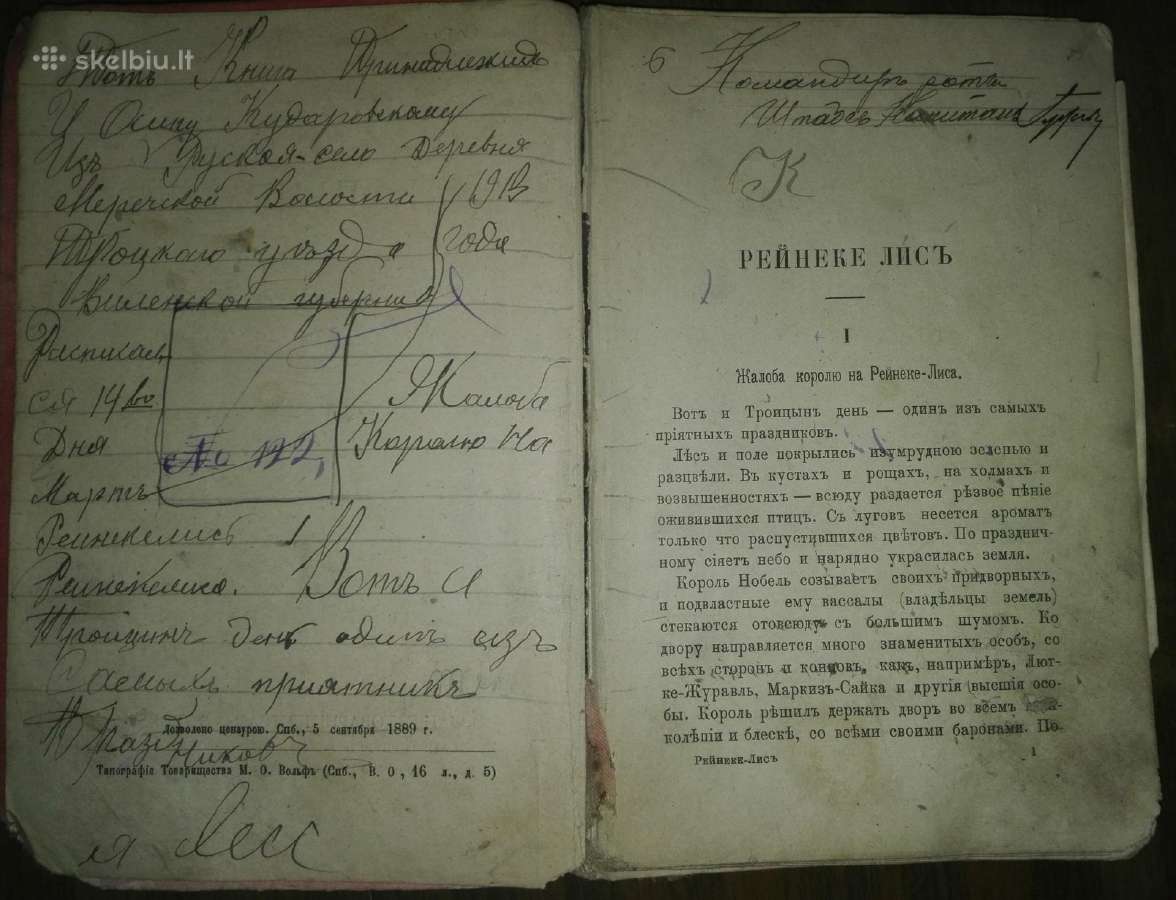 skelbiu.lt
Этотъ Книга Принадлежитъ
У Осипу Кударовскому
Изъ Руская-село Деревня
Меречской Волости 1913
Троцкаго уѣзда года
Виленской губернии
Расписал
ся 14го
Дня
Мартъ
№ 122,
Жалоба
Королю На
Реинекелисъ 1
Реинекелиса. Вотъ и
Троицинъ денъ одинъ изъ
Самыхъ приятникъ
Празниковъ
Дозволено цензурою. Спб., 5 сентября 1889 г.
Типографія Товарищества М. О. Вольфъ (Спб., В. О, 16 л., д. 5)
я Лес
6
Командиръ роты
Штабсъ Капитанъ
К
РЕЙНЕКЕ ЛИСЪ
I
Жалоба королю на Рейнеке-Лиса.
Вотъ и Троицынъ день — одинъ изъ самыхъ
пріятныхъ праздниковъ.
Лѣсъ и поле покрылись изумрудною зеленью и
разцвѣли. Въ кустахъ и рощахъ, на холмахъ и
возвышенностяхъ — всюду раздается рѣзвое пѣніе
оживившихся птицъ. Съ луговъ несется ароматъ
только что распустившихся цвѣтовъ. По празднич-
ному сіяетъ небо и нарядно украсилась земля.
Король Нобель созываетъ своихъ придворныхъ,
и подвластные ему вассалы (владѣльцы земель)
стекаются отовсюду съ большимъ шумомъ. Ко
двору направляется много знаменитыхъ особъ, со
всѣхъ сторонъ и концовъ, какъ, напримѣръ, Лют-
ке-Журавль, Маркизъ-Сайка и другія высшія осо-
бы. Король рѣшилъ держать дворъ во всемъ
колѣпіи и блескѣ, со всѣми своими баронами. По-
Рейнеке-Лисъ 1